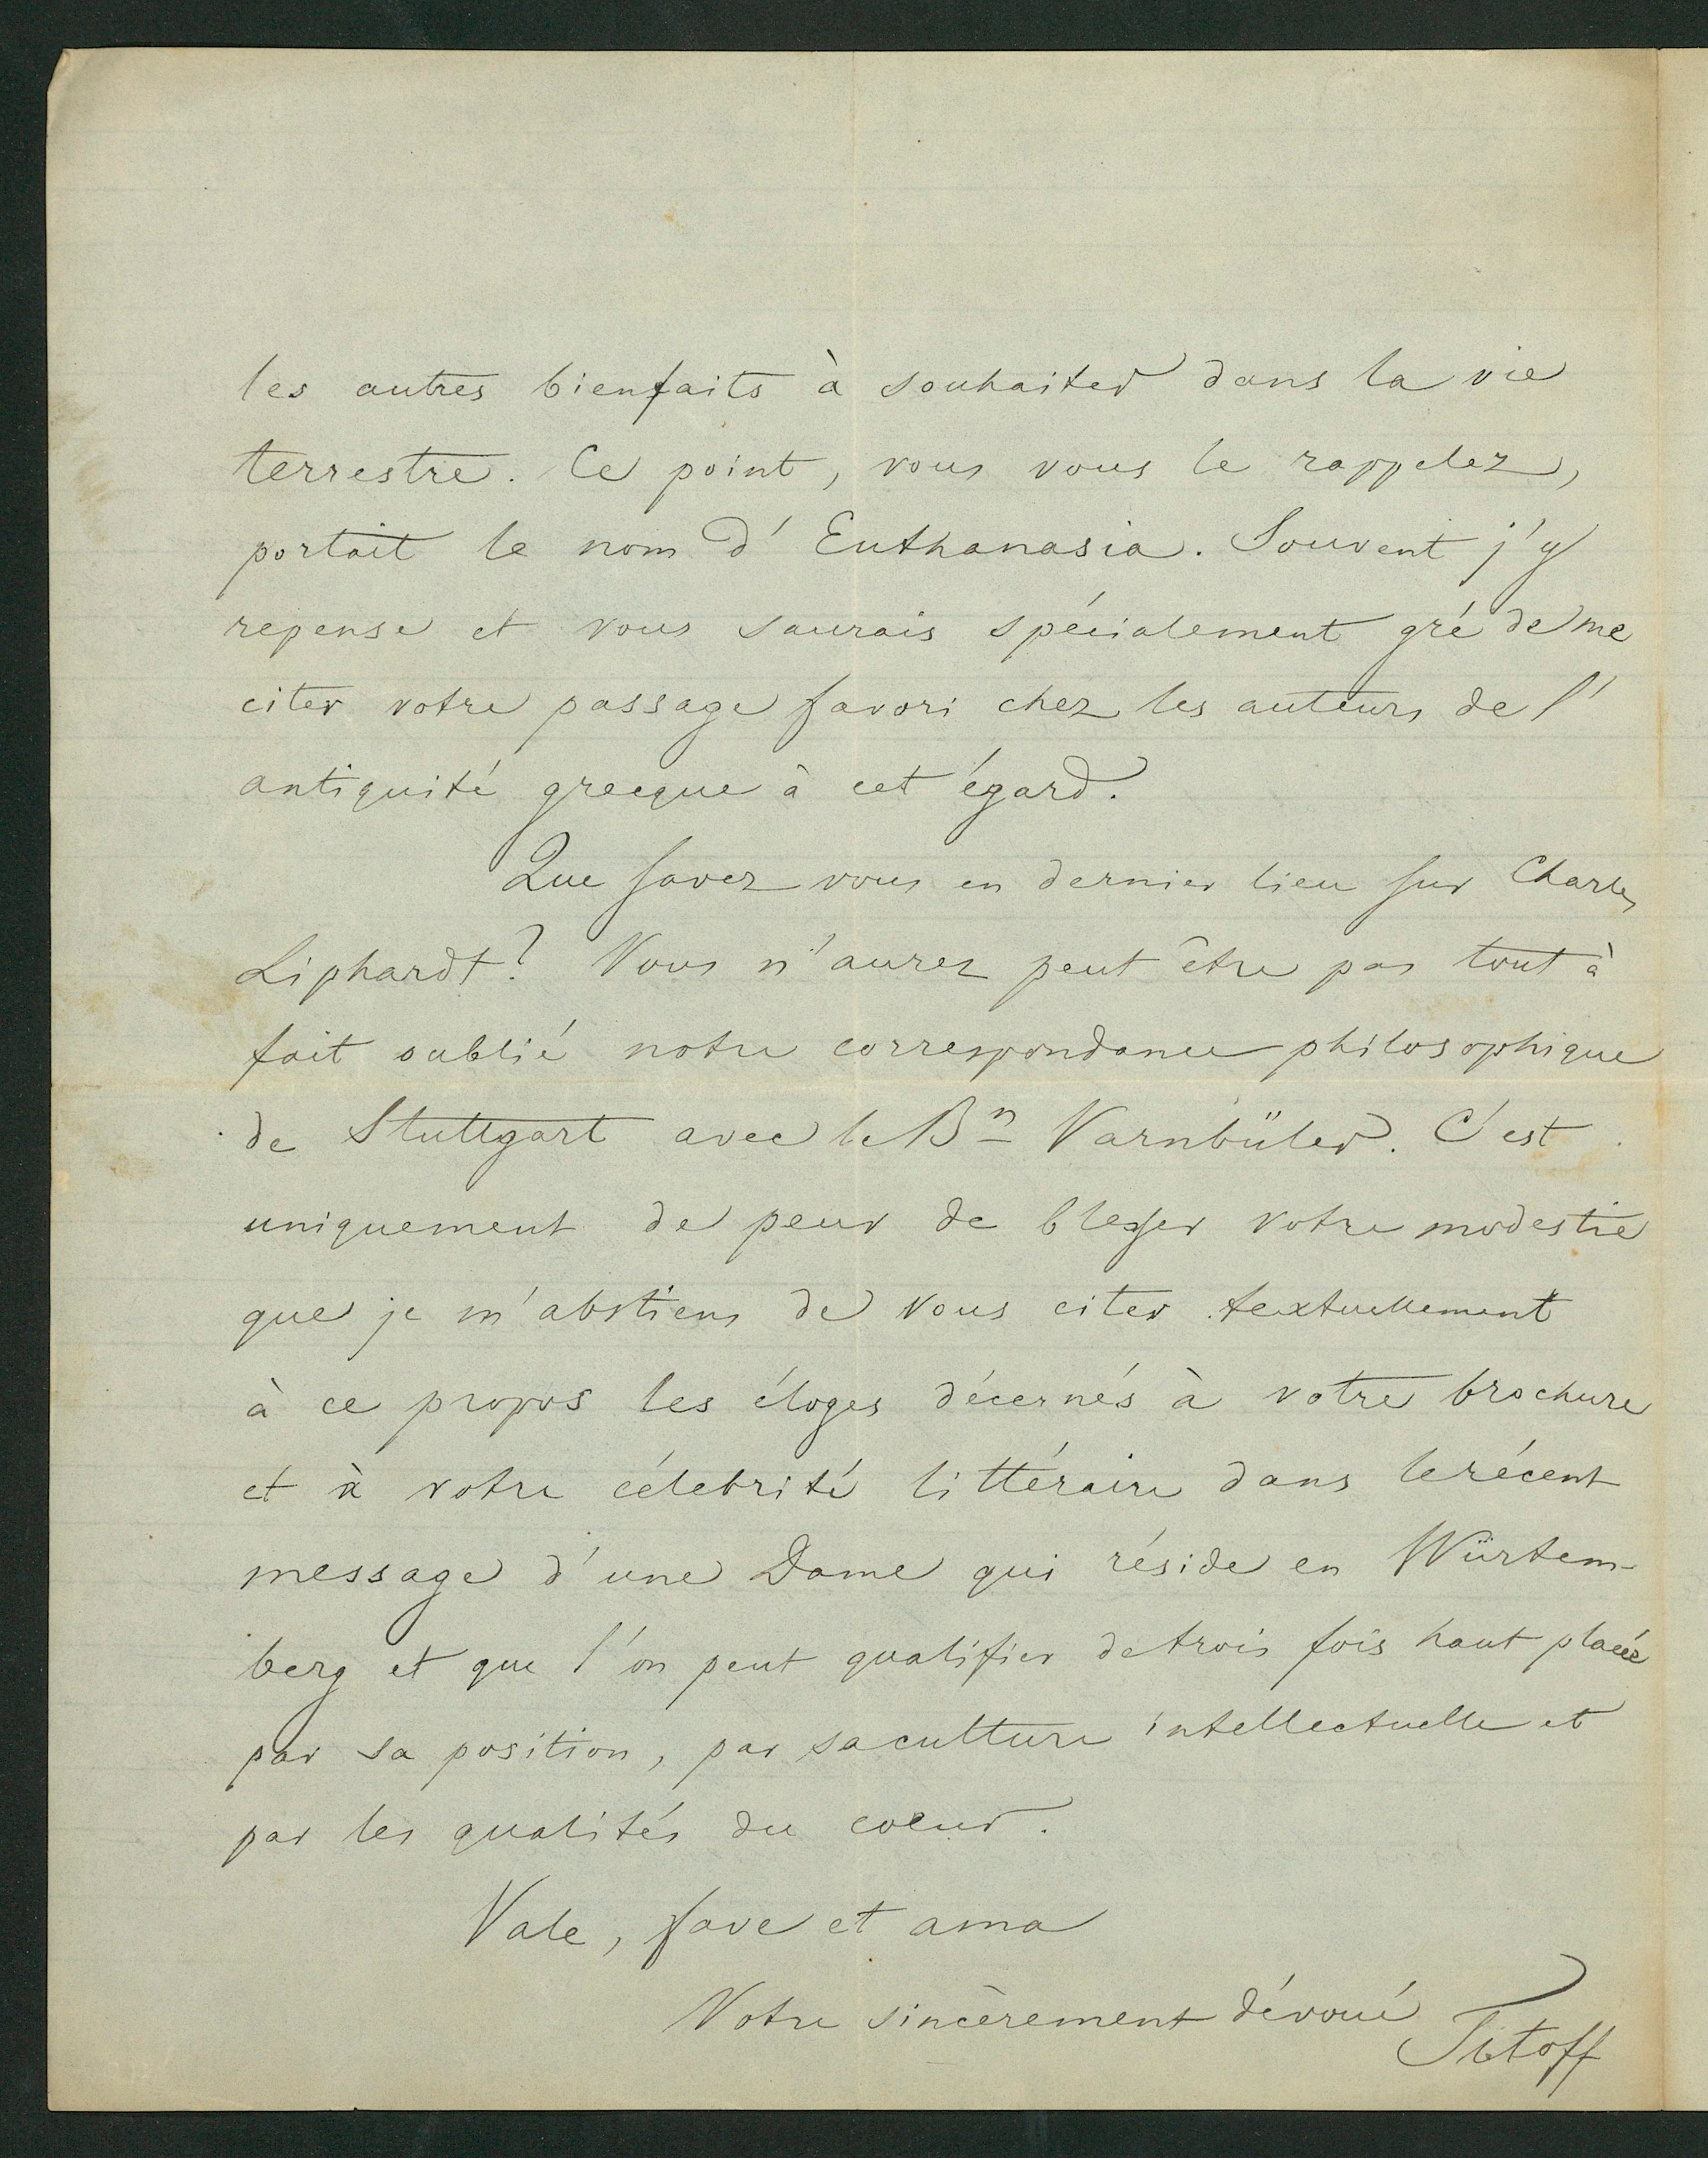 les autres bienfaits à souhaiter dans la vie
terrestre. Ce point, vous vous le rappelez,
portait le nom d'Euthanasia. Souvent j'y
repense et vous saurais spécialement gré de me
citer votre passage favori chez les auteurs de l'
antiquité grecque à cet égard.
Que savez vous en dernier lieu sur Charles
Liphardt? Vous n'aurez peut être pas tout à
fait oublié notre correspondance philosophique
de Stuttgart avec le Bn Varnbüler. C'est
uniquement de peur de blesser votre modestie
que je m'abstiens de vous citer textuellement
à ce propos les éloges décernés à votre brochure
et à votre célebrité littéraire dans le récent
message d'une Dame qui réside en Würtem-
berg et que l'on peut qualifier de trois fois haut placée
par sa position, par sa culture intellectuelle et
par les qualités du coeur.
Vale, fave et ama
Votre sincèrement dévoué
Titoff